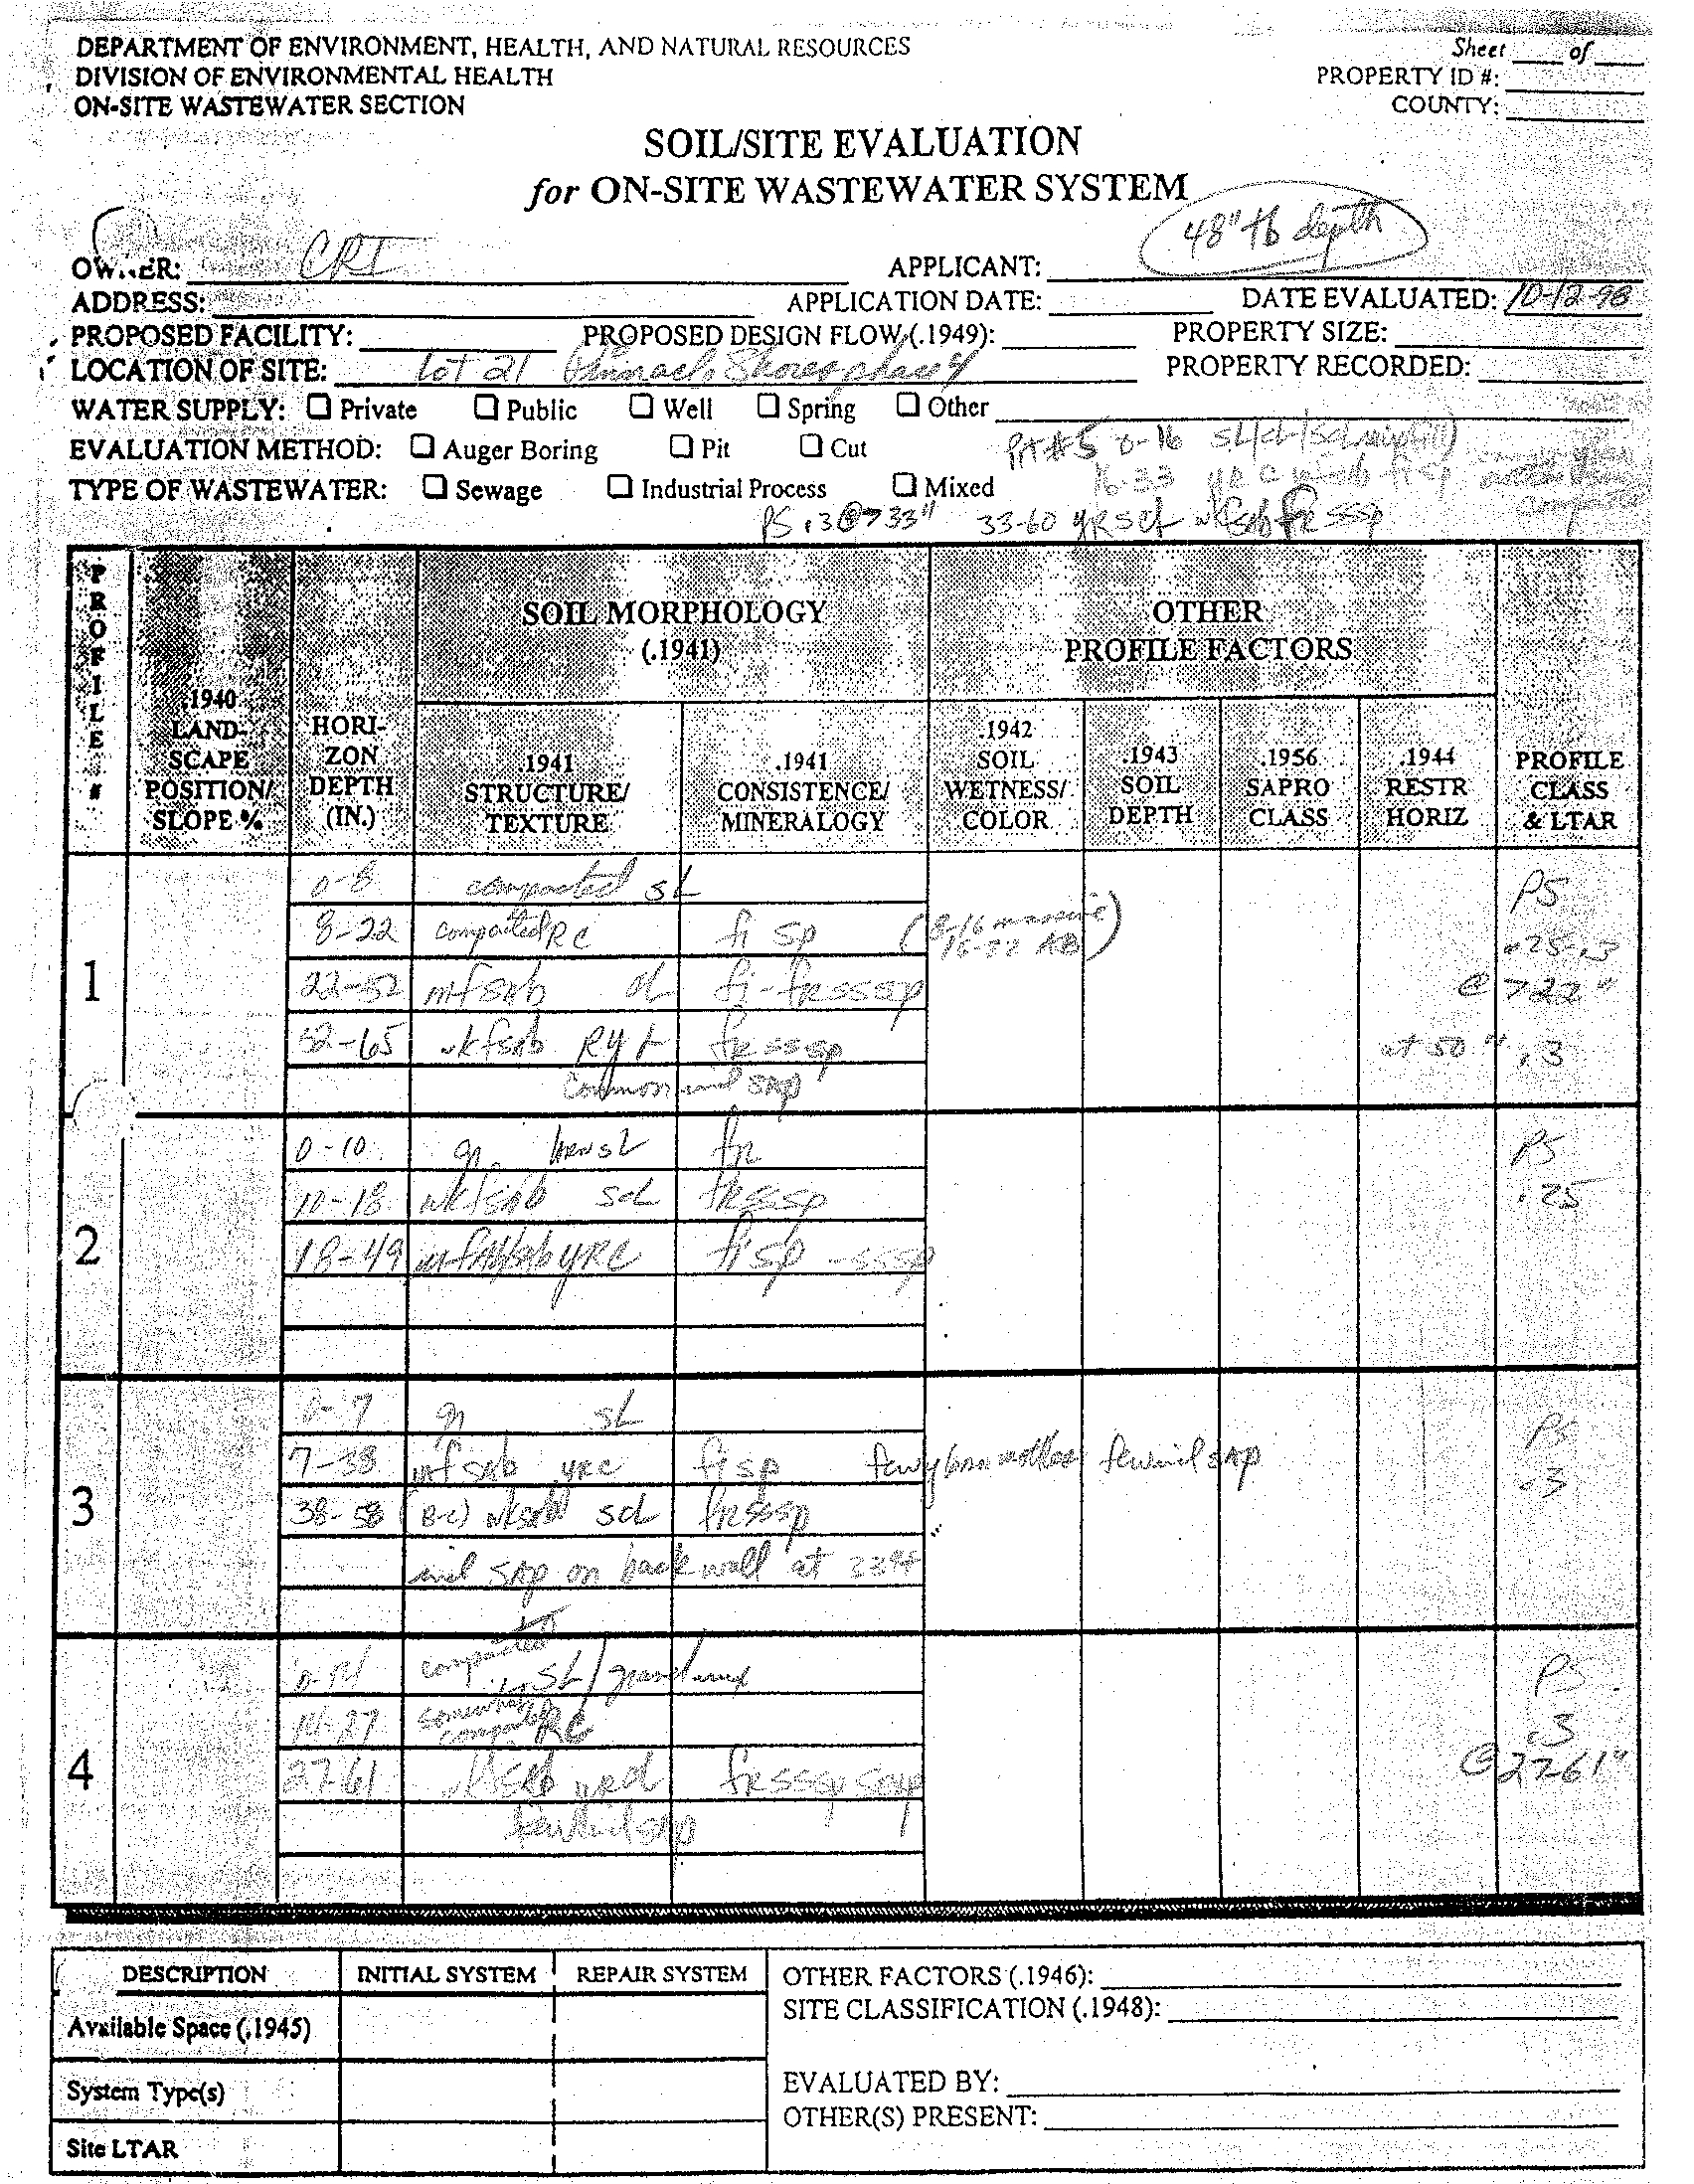 DEPARTMENT OF ENVIRONMENT, HEALTH, AND NATURAL RESOURCES
Sheet ___ of ___
DIVISION OF ENVIRONMENTAL HEALTH
PROPERTY ID #:
ON-SITE WASTEWATER SECTION
COUNTY:
SOIL/SITE EVALUATION
for ON-SITE WASTEWATER SYSTEM
48" tb depth
OWNER: CRI
APPLICANT:
ADDRESS:
APPLICATION DATE:
DATE EVALUATED: 10-12-98
PROPOSED FACILITY:
PROPOSED DESIGN FLOW (.1949):
PROPERTY SIZE:
LOCATION OF SITE: Lot 21 Shores phase 4
PROPERTY RECORDED:
WATER SUPPLY: ☐ Private ☐ Public ☐ Well ☐ Spring ☐ Other
EVALUATION METHOD: ☐ Auger Boring ☐ Pit ☐ Cut
Pit #5 0-16
TYPE OF WASTEWATER: ☐ Sewage ☐ Industrial Process ☐ Mixed
16-33
PS .3 @ >33" 33-60 YR scl wkfsab fr sssp
PROFILE #
.1940 LAND-SCAPE POSITION/ SLOPE %
HORI-ZON DEPTH (IN.)
SOIL MORPHOLOGY (.1941)
.1941 STRUCTURE/ TEXTURE
.1941 CONSISTENCE/ MINERALOGY
OTHER PROFILE FACTORS
.1942 SOIL WETNESS/ COLOR
.1943 SOIL DEPTH
.1956 SAPRO CLASS
.1944 RESTR HORIZ
PROFILE CLASS & LTAR
1
0-8 compacted SL
PS
8-22 compacted RC fi sp (8-16 massive 16-22 AB)
.25-.3
22-52 mfsab cl fi-frsssp
@ >22"
52-65 wkfsab RY L frsssp
at 50" .3
common sap
2
0-10 gr brn SL fr
PS
10-18 wkfsab scL frsssp
.25
18-49 mfab/sab YRC fi sp - sssp
3
0-7 gr SL
PS
7-38 mfsab YRC fi sp few
.3
38-58 (B-C) wksab scl frsssp
sap on back wall at
4
0-14 compacted SL/
PS
14-27 somewhat compacted RC
.3
27-61 wksab frsssp
@ 27-61"
DESCRIPTION
INITIAL SYSTEM
REPAIR SYSTEM
OTHER FACTORS (.1946):
SITE CLASSIFICATION (.1948):
Available Space (.1945)
System Type(s)
EVALUATED BY:
OTHER(S) PRESENT:
Site LTAR